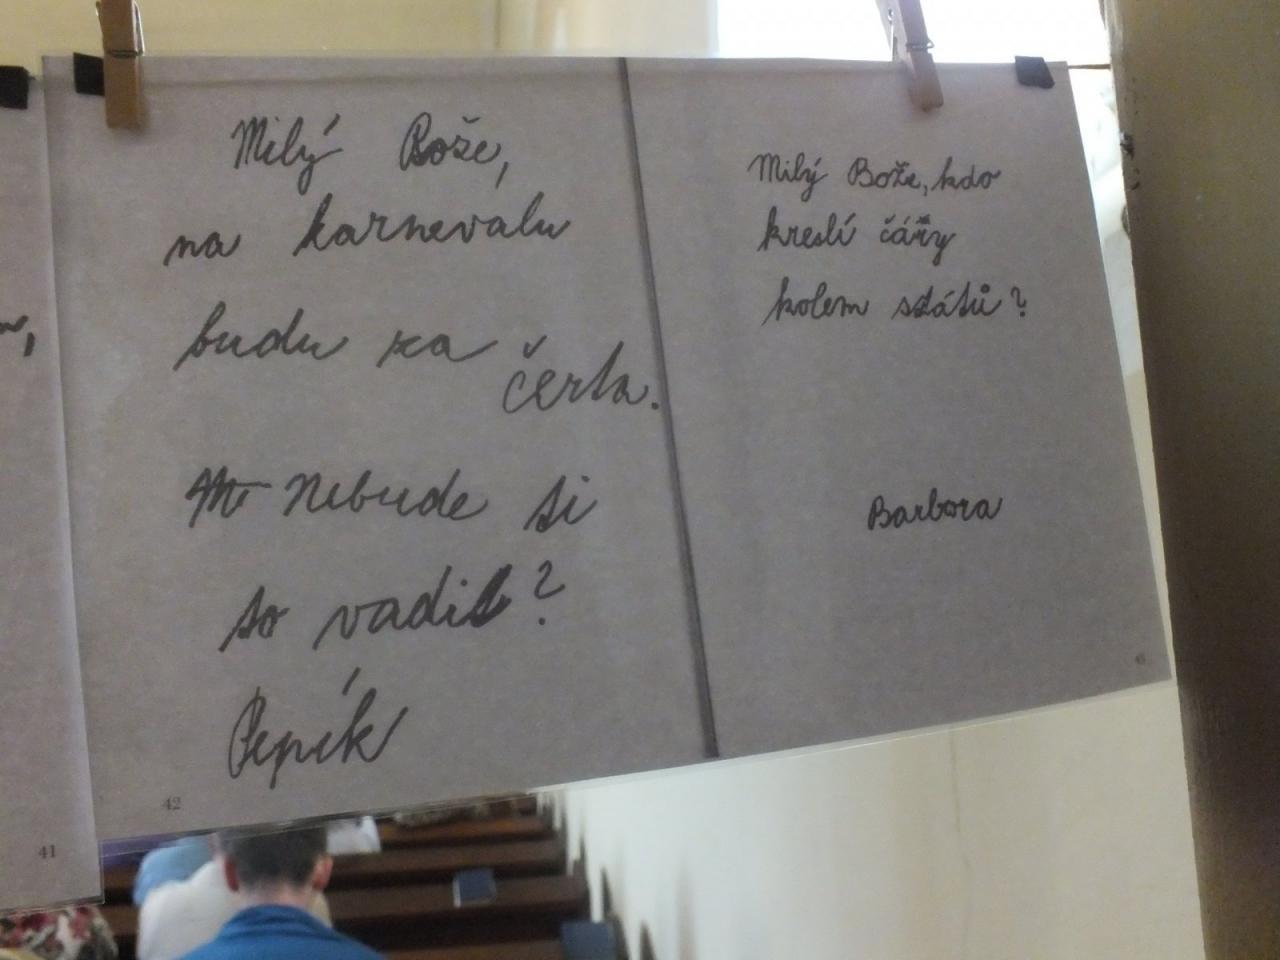 Milý Bože,
na karnevalu
budu za
čerta.
Nebude si
to vadit?
Pepík
42
Milý Bože, kdo
kreslí čáry
kolem států?
Barbora
41